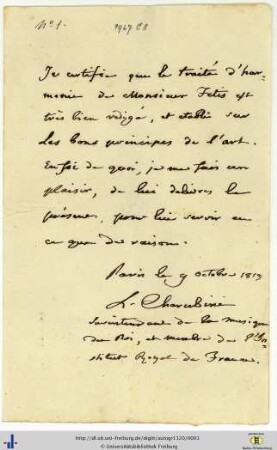 N° 1.
1967 C8
Je certifie que le traité d'har-
monie de Monsieur Fetis est
très bien rédigé, et établi sur
les bons principes de l'art.
En foi de quoi, je me fais un
plaisir, de lui délivrer le
présent, pour lui servir en
ce que de raison.
Paris le 9 octobre 1819
L. Cherubini
Surintendant de la musique
du Roi, et membre de l'In-
stitut Royal de France.
http://dl.ub.uni-freiburg.de/diglit/autogr1120/0001
© Universitätsbibliothek Freiburg